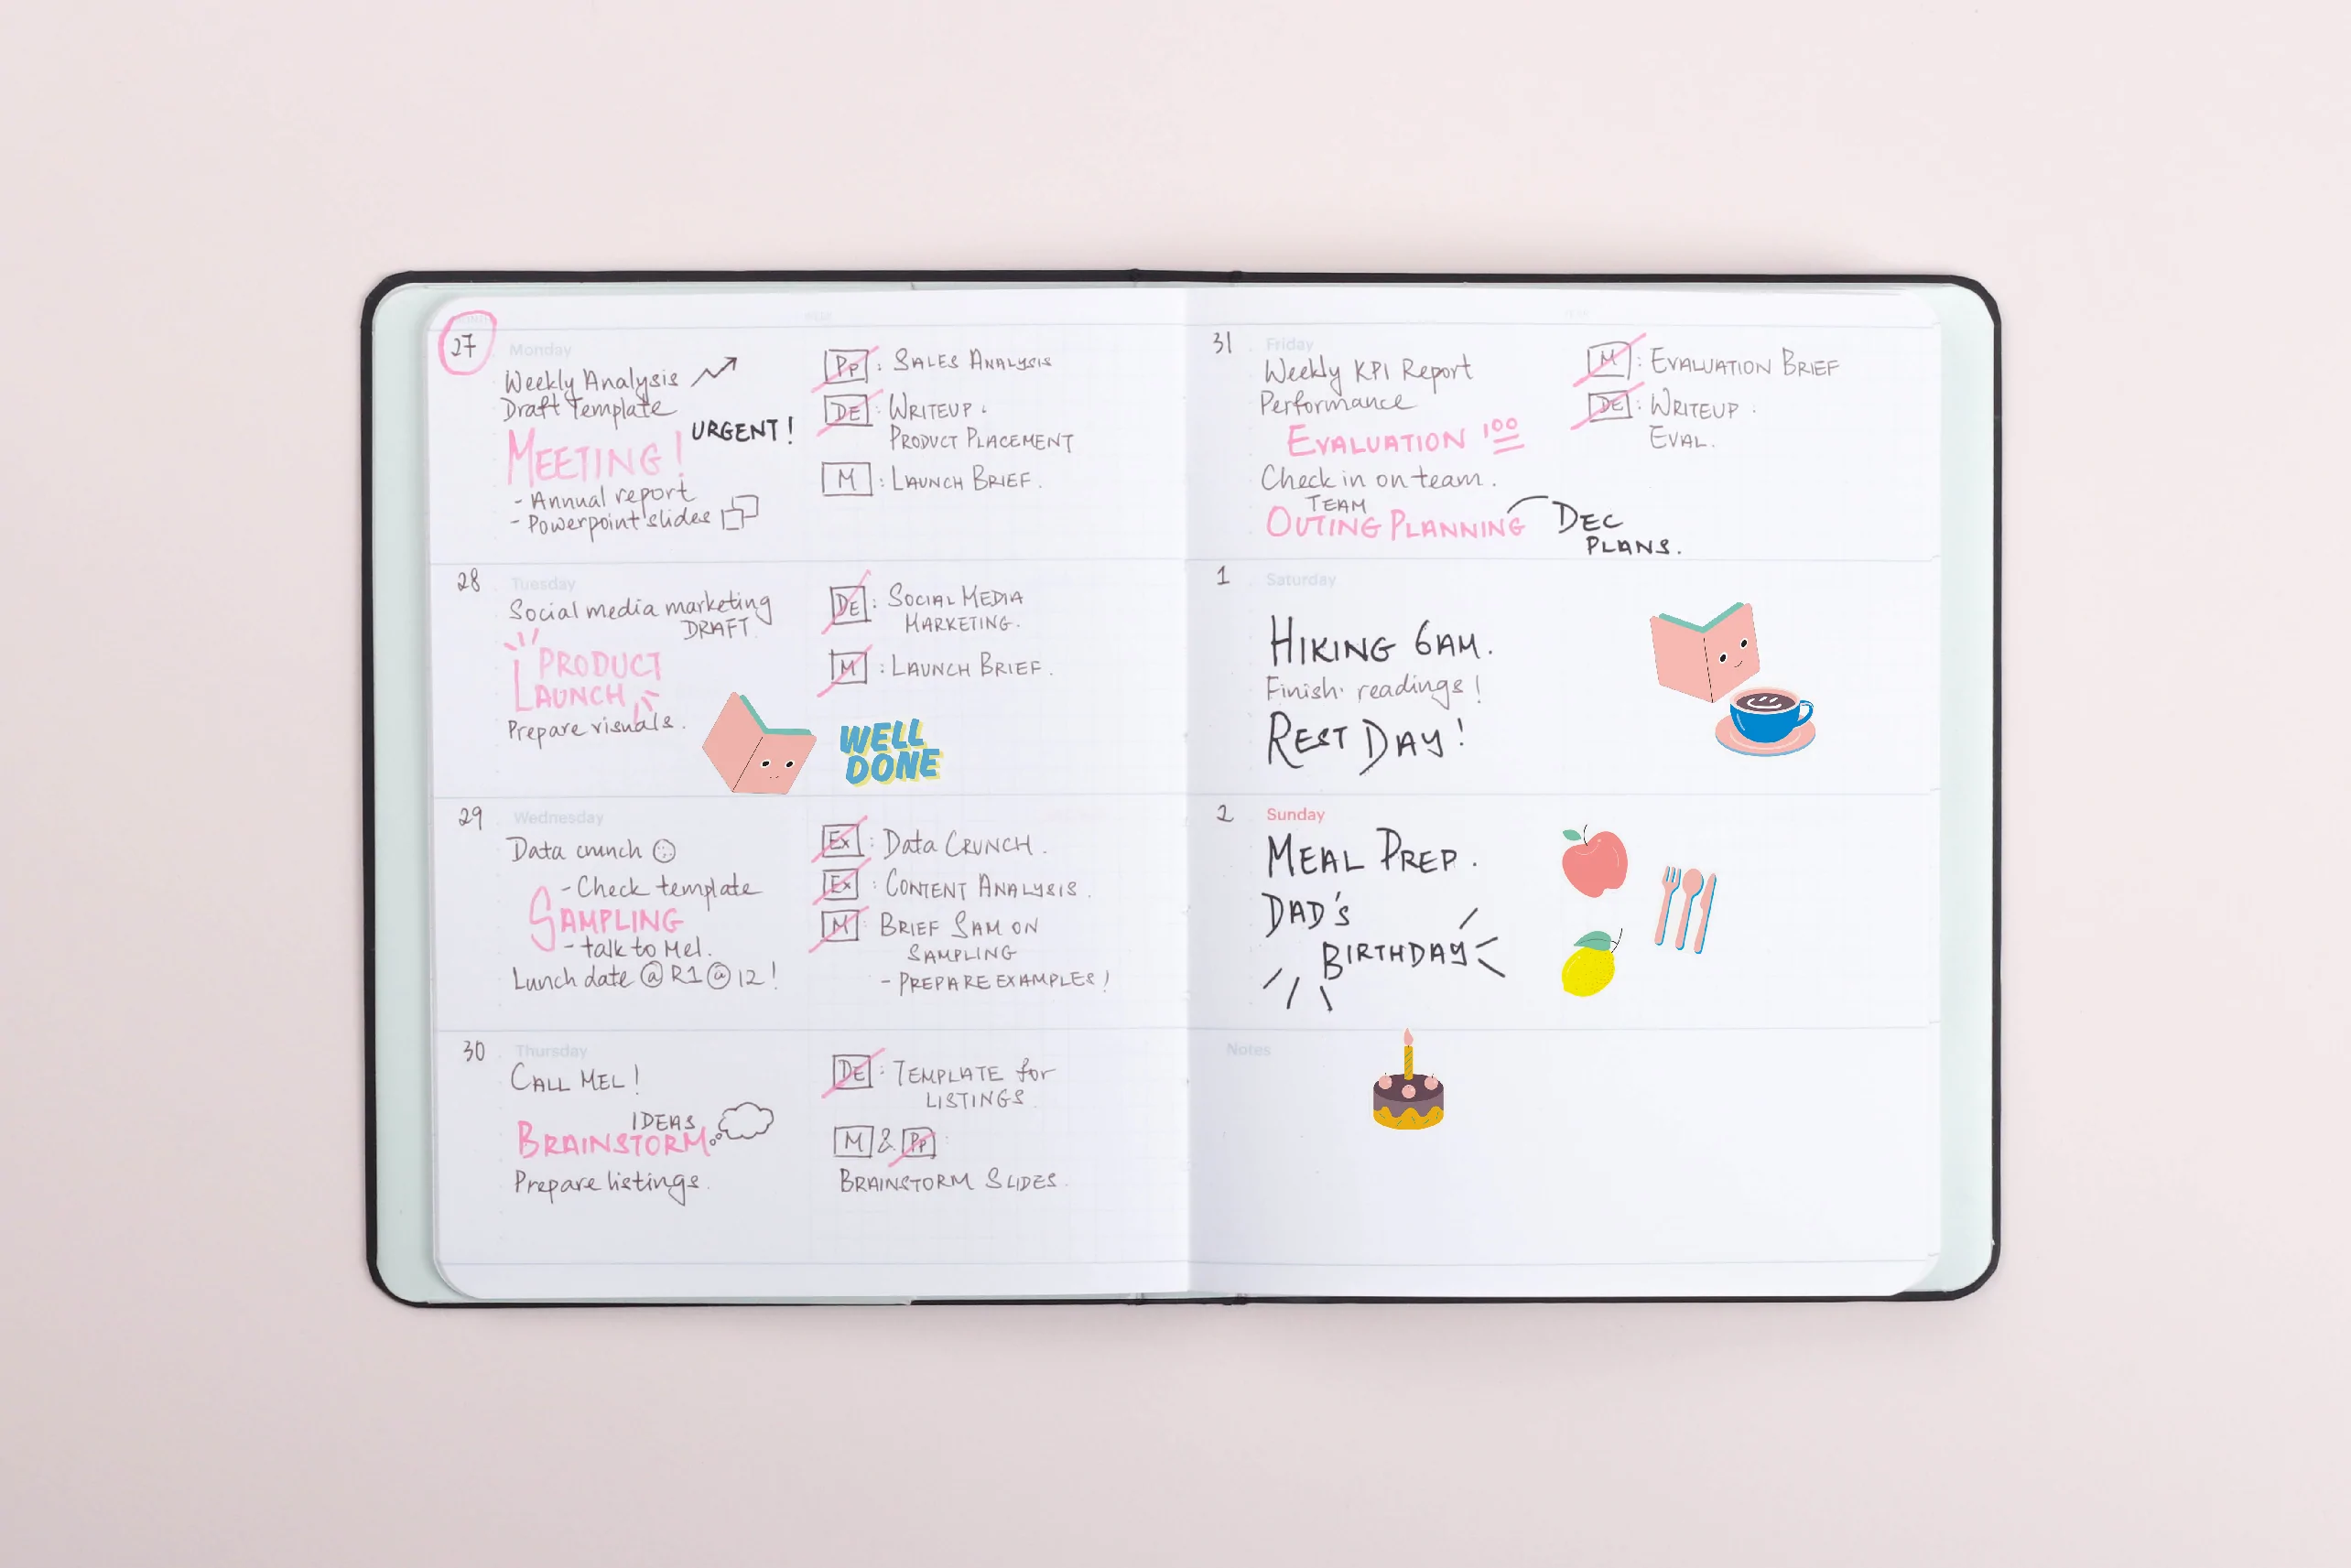 27 Monday
Weekly Analysis
Draft Template
URGENT!
MEETING!
- Annual report
- Powerpoint slides
Pp : SALES ANALYSIS
DE : WRITEUP.
PRODUCT PLACEMENT
M : LAUNCH BRIEF.
28 Tuesday
Social media marketing
DRAFT.
PRODUCT
LAUNCH
Prepare visuals.
DE : SOCIAL MEDIA
MARKETING.
M : LAUNCH BRIEF.
WELL
DONE
29 Wednesday
Data crunch
- Check template
SAMPLING
- talk to Mel.
Lunch date @ R1 @ 12!
Ex : Data CRUNCH.
Ex : CONTENT ANALYSIS.
M : BRIEF SAM ON
SAMPLING
- PREPARE EXAMPLES!
30 Thursday
CALL MEL!
IDEAS
BRAINSTORM
Prepare listings.
DE : TEMPLATE for
LISTINGS.
M & Pp :
BRAINSTORM SLIDES.
31 Friday
Weekly KPI Report
Performance
EVALUATION 100
Check in on team.
TEAM
OUTING PLANNING
DEC
PLANS.
M : EVALUATION BRIEF
DE : WRITEUP.
EVAL.
1 Saturday
HIKING 6AM.
Finish readings!
REST DAY!
2 Sunday
MEAL PREP.
DAD'S
BIRTHDAY
Notes